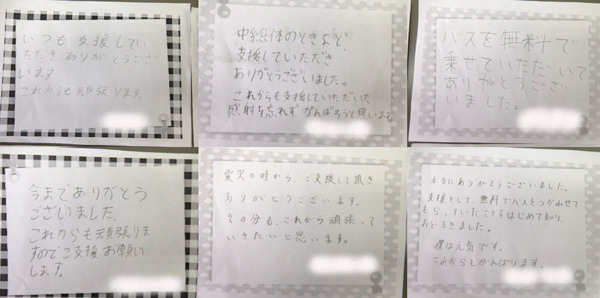 いつも支援してい
ただきありがとうござい
います
これからも頑張ります。
中総体のときなど、
支援していただき
ありがとうございました。
これからも支援していただいた
感謝を忘れずがんばろうと思います
バスを無料で
乗せていただいて
ありがとうござ
いました。
今までありがとう
ございました。
これからも頑張りま
すのでご支援お願い
します。
震災の時から、ご支援して頂き
ありがとうございます。
その分も、これから頑張って
いきたいと思います。
本当にありがとうございました。
支援をして、無料でバスをつかわせて
もらっていたことをはじめて知り、
おどろきました。
僕は元気です。
これからもがんばります。